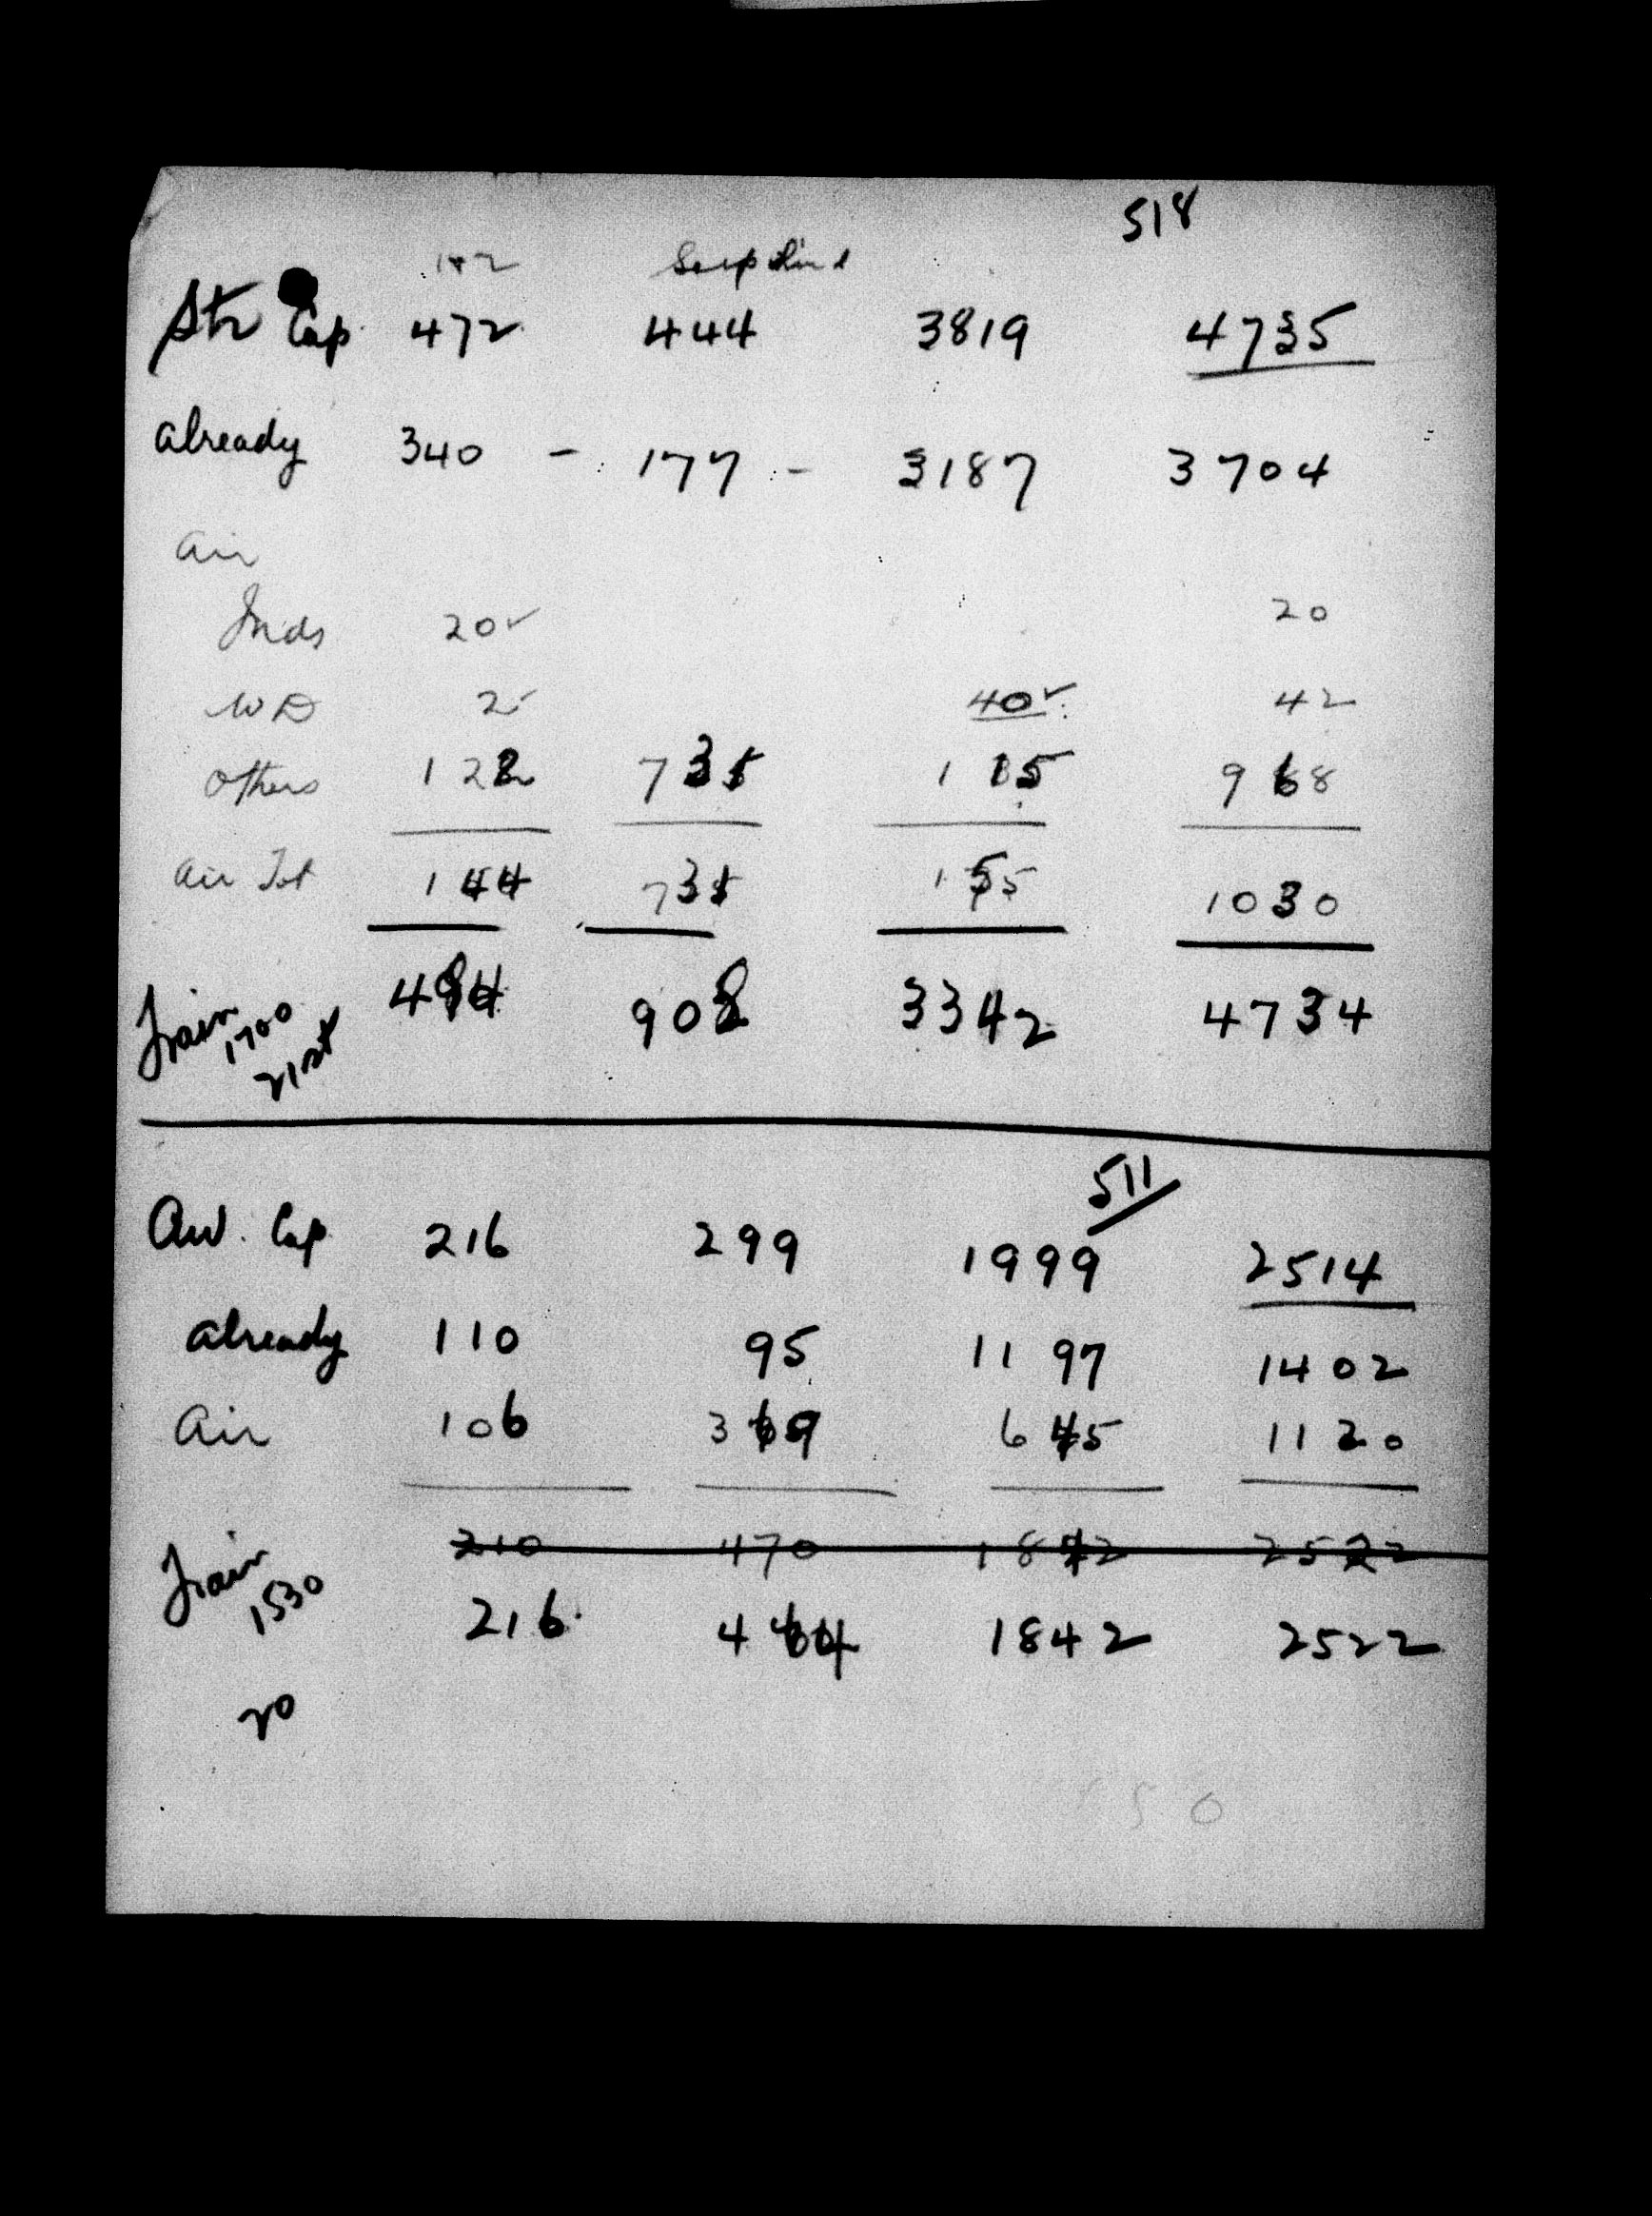 518
1+2
Str Cap. 472 444 3819 4735
Already 340 - 177 - 3187 3704
Air
Inds 20✓ 20
WD 2✓ 40✓ 42
Others 122 731 115 968
Air Tot 144 731 155 1030
Train 1700 21st 484 908 3342 4734
511
Av. Cap 216 299 1999 2514
Already 110 95 1197 1402
Air 106 369 645 1120
210 470 1842 2522
Train 1530 20 216 464 1842 2522
50